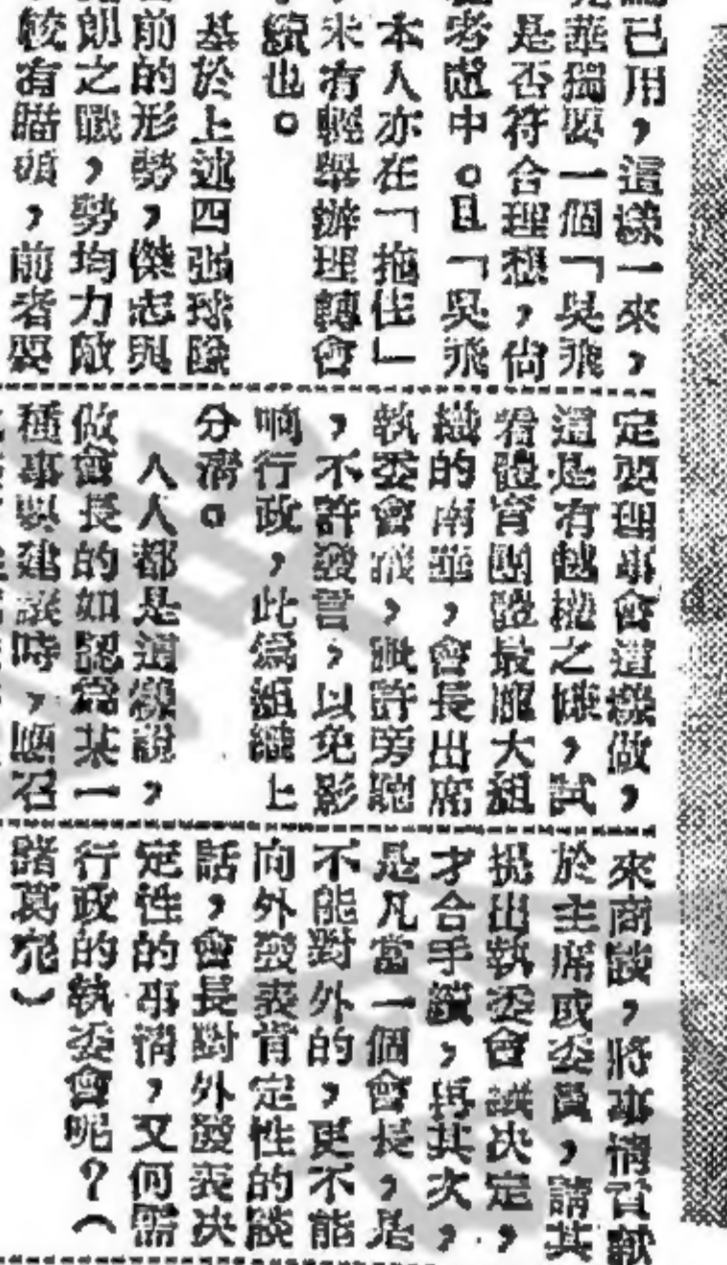 已用，這樣一來，
華獨要一個「吳飛
是否符合理想，尙
考慮中。且「吳飛
本人亦在「拖住」
，未有輕舉辦理轉會
續也。
基於上述四強球隊
前的形勢，傑志與
朗之戰，勢均力敵
較有瞄頭，前者要
定要理事會這樣做，
還是有越權之嫌，試
看體育團體最龐大組
織的南華，會長出席
執委會議，祇許旁聽
，不許發言，以免影
响行政，此爲組織上
分淸。
人人都是這樣說，
做會長的如認爲某一
種事要建議時，應召
來商談，將事情貢獻
於主席或委員，請其
提出執委會議決定，
才合手續，與其次，
是凡當一個會長，是
不能對外的，更不能
向外發表肯定性的談
話，會長對外發表決
定性的事情，又何需
行政的執委會呢？（
諸葛亮）